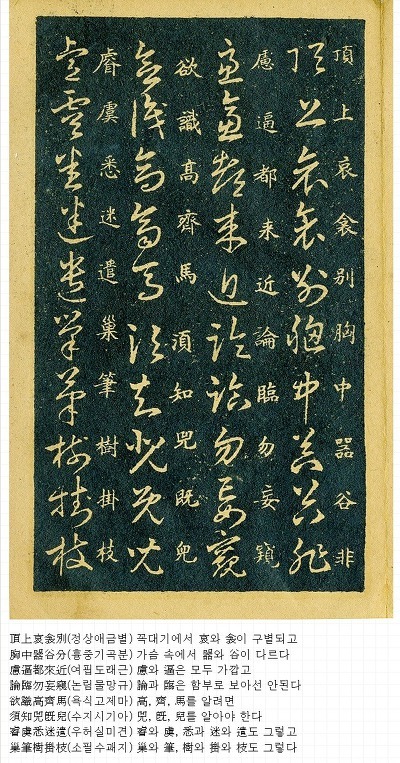 頂上哀衾別胸中器谷非
慮逼都来近論臨勿妄窺
欲識高齊馬須知兕既兕
睿虞悉迷遣巢筆樹掛枝
頂上哀衾別(정상애금별) 꼭대기에서 哀와 衾이 구별되고
胸中器谷分(흉중기곡분) 가슴 속에서 器와 谷이 다르다
慮逼都來近(여핍도래근) 慮와 逼은 모두 가깝고
論臨勿妄窺(논림물망규) 論과 臨은 함부로 보아선 안된다
欲識高齊馬(욕식고제마) 高, 齊, 馬를 알려면
須知兕旣兒(수지시기아) 兕, 旣, 兒를 알아야 한다
睿虞悉迷遣(우허실미견) 睿와 虞, 悉과 迷와 遣도 그렇고
巢筆樹掛枝(소필수괘지) 巢와 筆, 樹와 掛와 枝도 그렇다